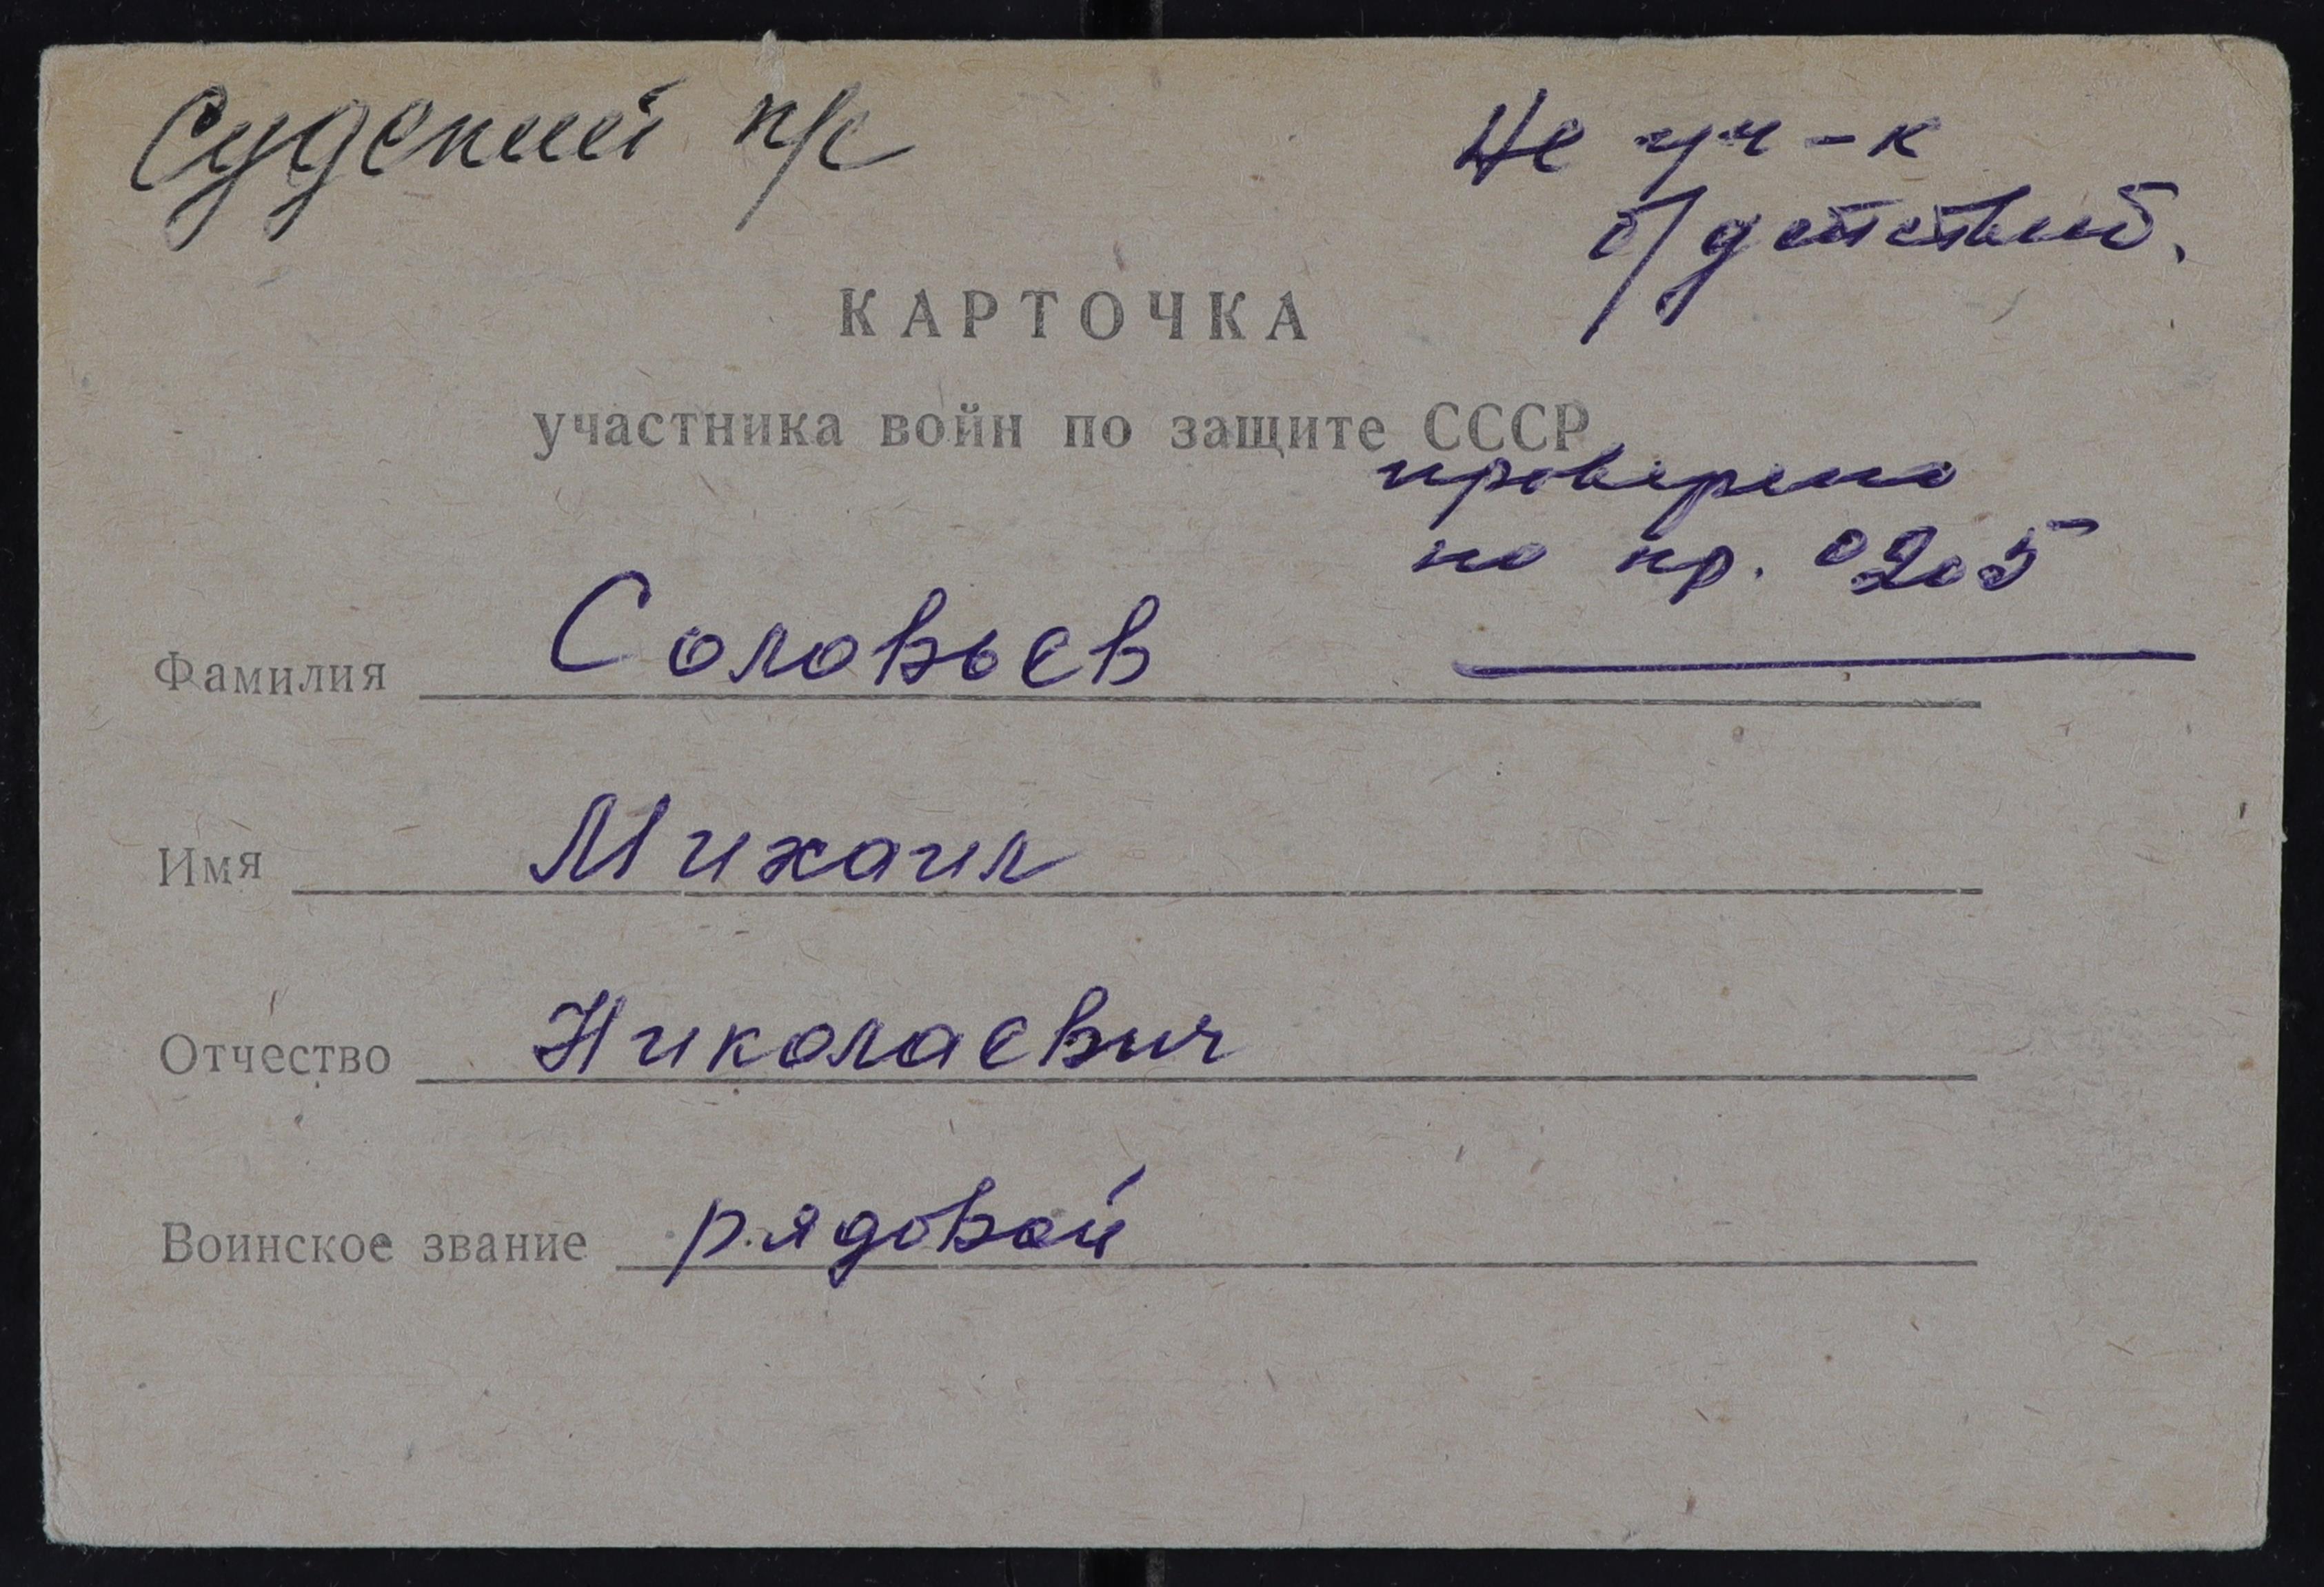 Судский п/с
Не уч-к
б/действий.
КАРТОЧКА
участника войн по защите СССР
проверено
по пр. 0205
Фамилия Соловьев
Имя Михаил
Отчество Николаевич
Воинское звание рядовой